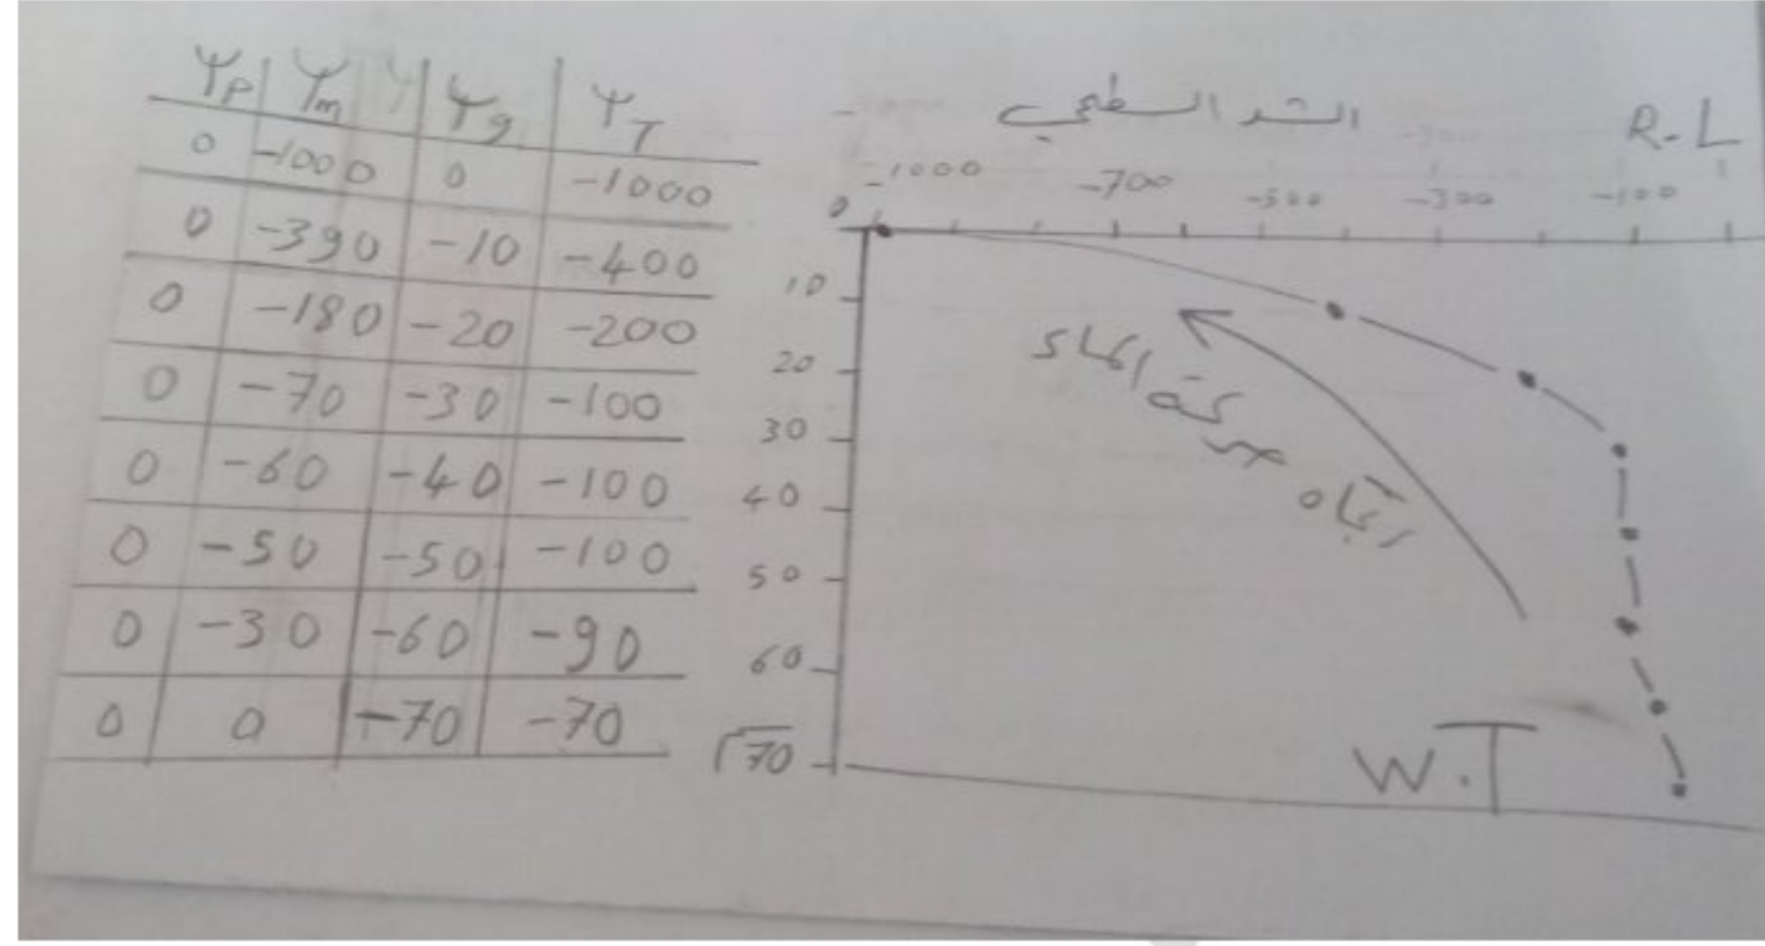 Ψp Ψm Ψg ΨT
0 -1000 0 -1000
0 -390 -10 -400
0 -180 -20 -200
0 -70 -30 -100
0 -60 -40 -100
0 -50 -50 -100
0 -30 -60 -90
0 0 -70 -70
الشد السطحي R-L
-1000 -700 -500 -300 -100
0
10
20
30
40
50
60
70
اتجاه حركة الماء
W.T